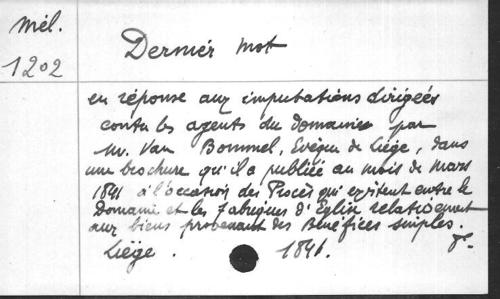 Mél.
1202
Dernier mot
en réponse aux imputations dirigées
contre les agents du domaine par
Mr. Van Bommel, Evêque de Liége, dans
une brochure qu'il a publiée au mois de Mars
1841 à l'occasion des Procès qui existent entre le
Domaine et les fabriques d'Eglise relativement
aux biens provenant des Bénéfices simples.
Liége. 1841.